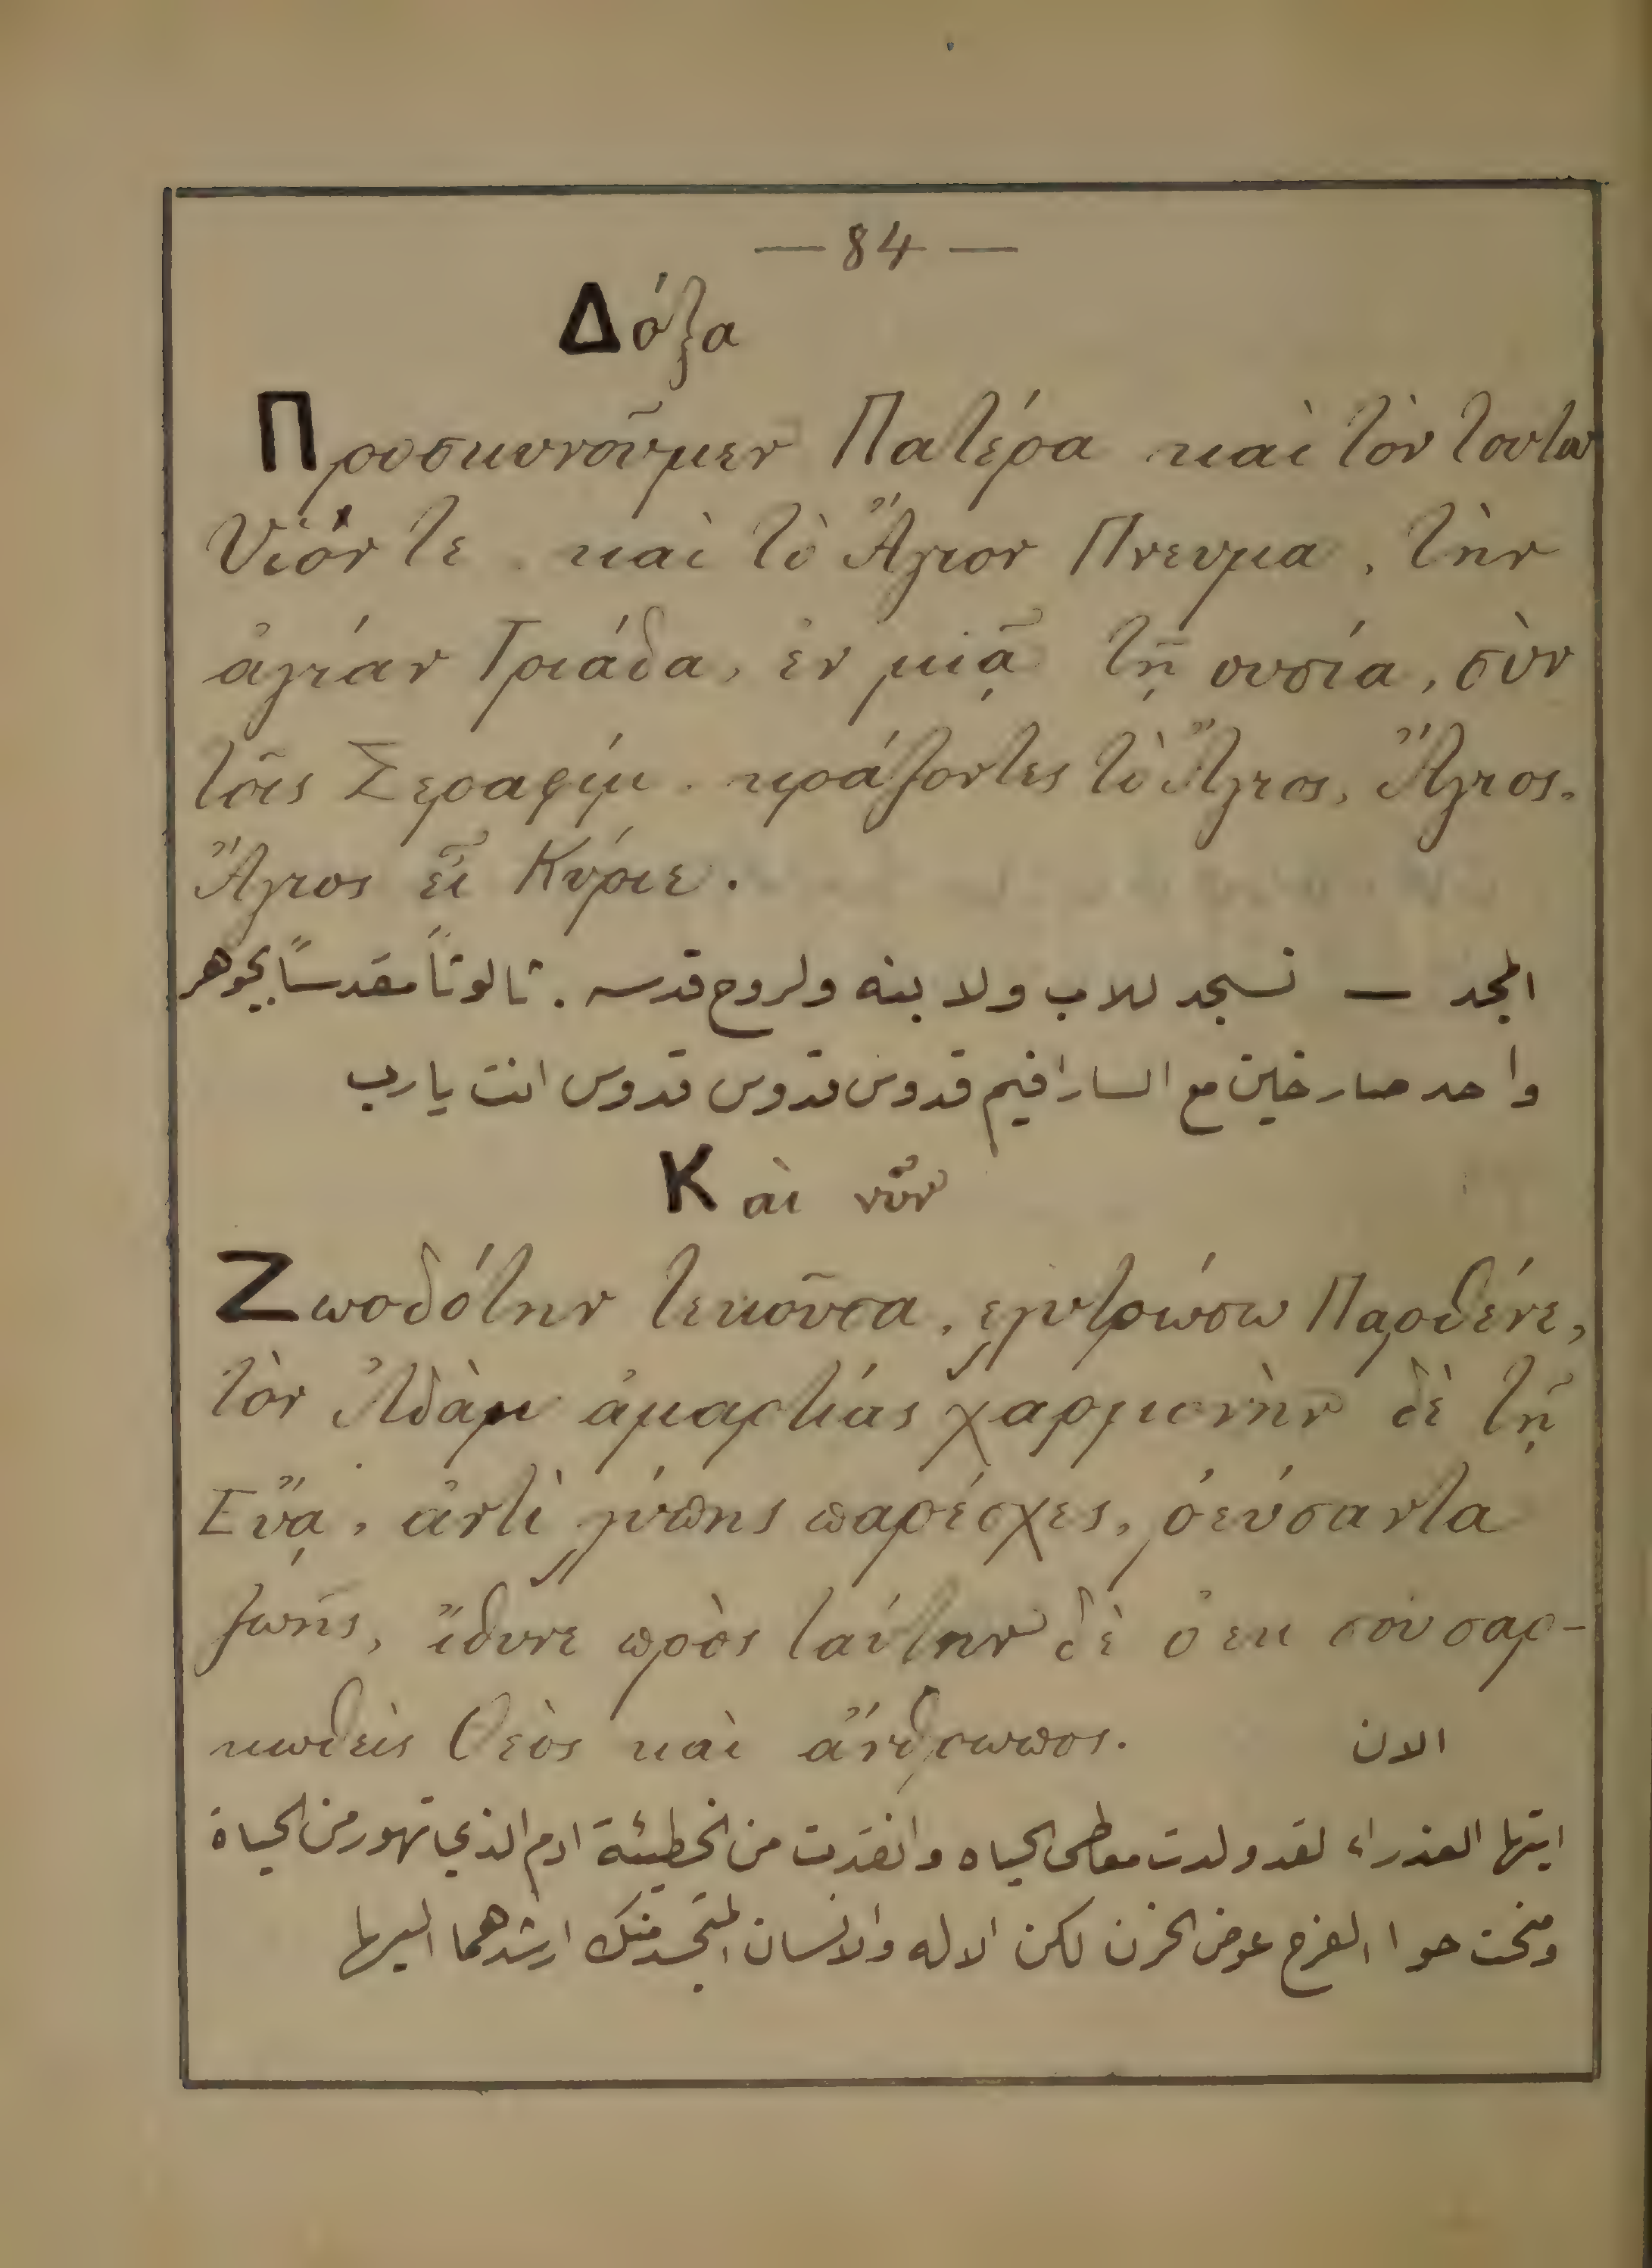 — 84 —
Δόξα
Προσκυνοῦμεν Πατέρα καὶ τὸν τούτου
Υἱόν τε καὶ τὸ Ἅγιον Πνευμα, τὴν
ἁγίαν Τριάδα, ἐν μιᾷ τῇ ουσία, σὺν
τοῖς Σεραφίμ. κράζοντες τὸ Ἅγιος, Ἅγιος.
Ἅγιος εἶ Κύριε.
المجد — نسجد للاب ولا بنه ولروح قدسه . ثالوثاً مقدساً بجوهر
واحد صارخين مع السارافيم قدوس قدوس قدوس انت يارب
Καὶ νῦν
Ζωοδότην τεκοῦσα, ελυτρώσω Παρθένε,
τὸν Ἀδὰμ ἁμαρτίας χαρμονὴν δὲ τῇ
Εὔᾳ, ἀντὶ λύπης παρέσχες, ῥεύσαντα
ζωῆς, ἴθυνε πρὸς ταύτην δὲ ὁ εκ σοῦ σαρ-
κωθεὶς Θεὸς καὶ ἄνθρωπος. الان
ايتها العذراء لقد ولدت معطى الحياه وانقذت من الخطيئة ادم الذي تهور من الحياة
ومنحت حوا الفرح عوض الحزن لكن الاله والانسان المتجسد منك ارشدهما اليها